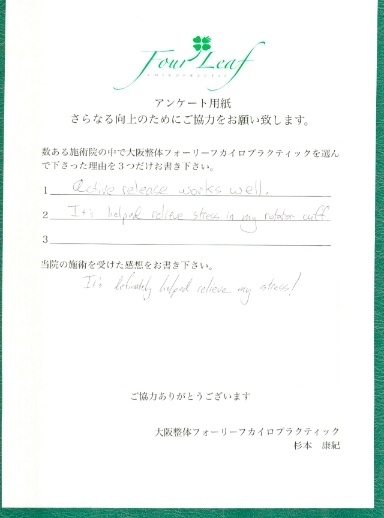 Four Leaf
CHIROPRACTIC
アンケート用紙
さらなる向上のためにご協力をお願い致します。
数ある施術院の中で大阪整体フォーリーフカイロプラクティックを選ん
で下さった理由を3つだけお書き下さい。
1 Active release works well.
2 It's helped relieve stress in my rotator cuff
3
当院の施術を受けた感想をお書き下さい。
It's definately helped relieve my stress!
ご協力ありがとうございます
大阪整体フォーリーフカイロプラクティック
杉本 康紀